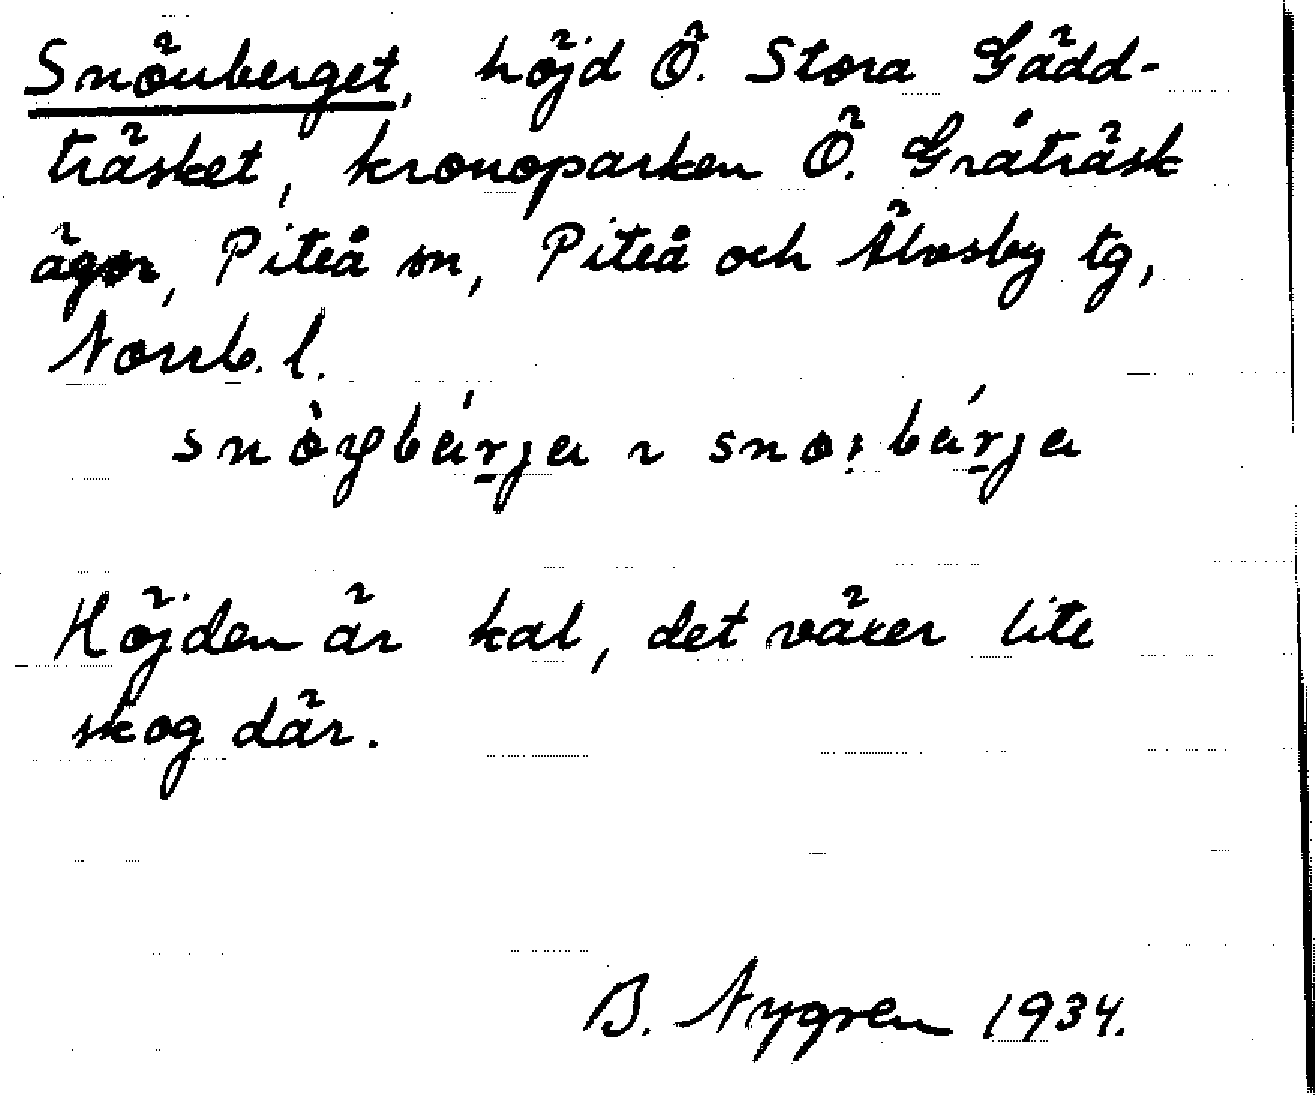 Snöuberget, höjd Ö. Stora Gädd-
träsket, kronoparken Ö. Gråträsk
ägor, Piteå sn, Piteå och Älvsby tg,
Norrb. l.
Höjden är kal, det växer lite
skog där.
B. Nygren 1934.